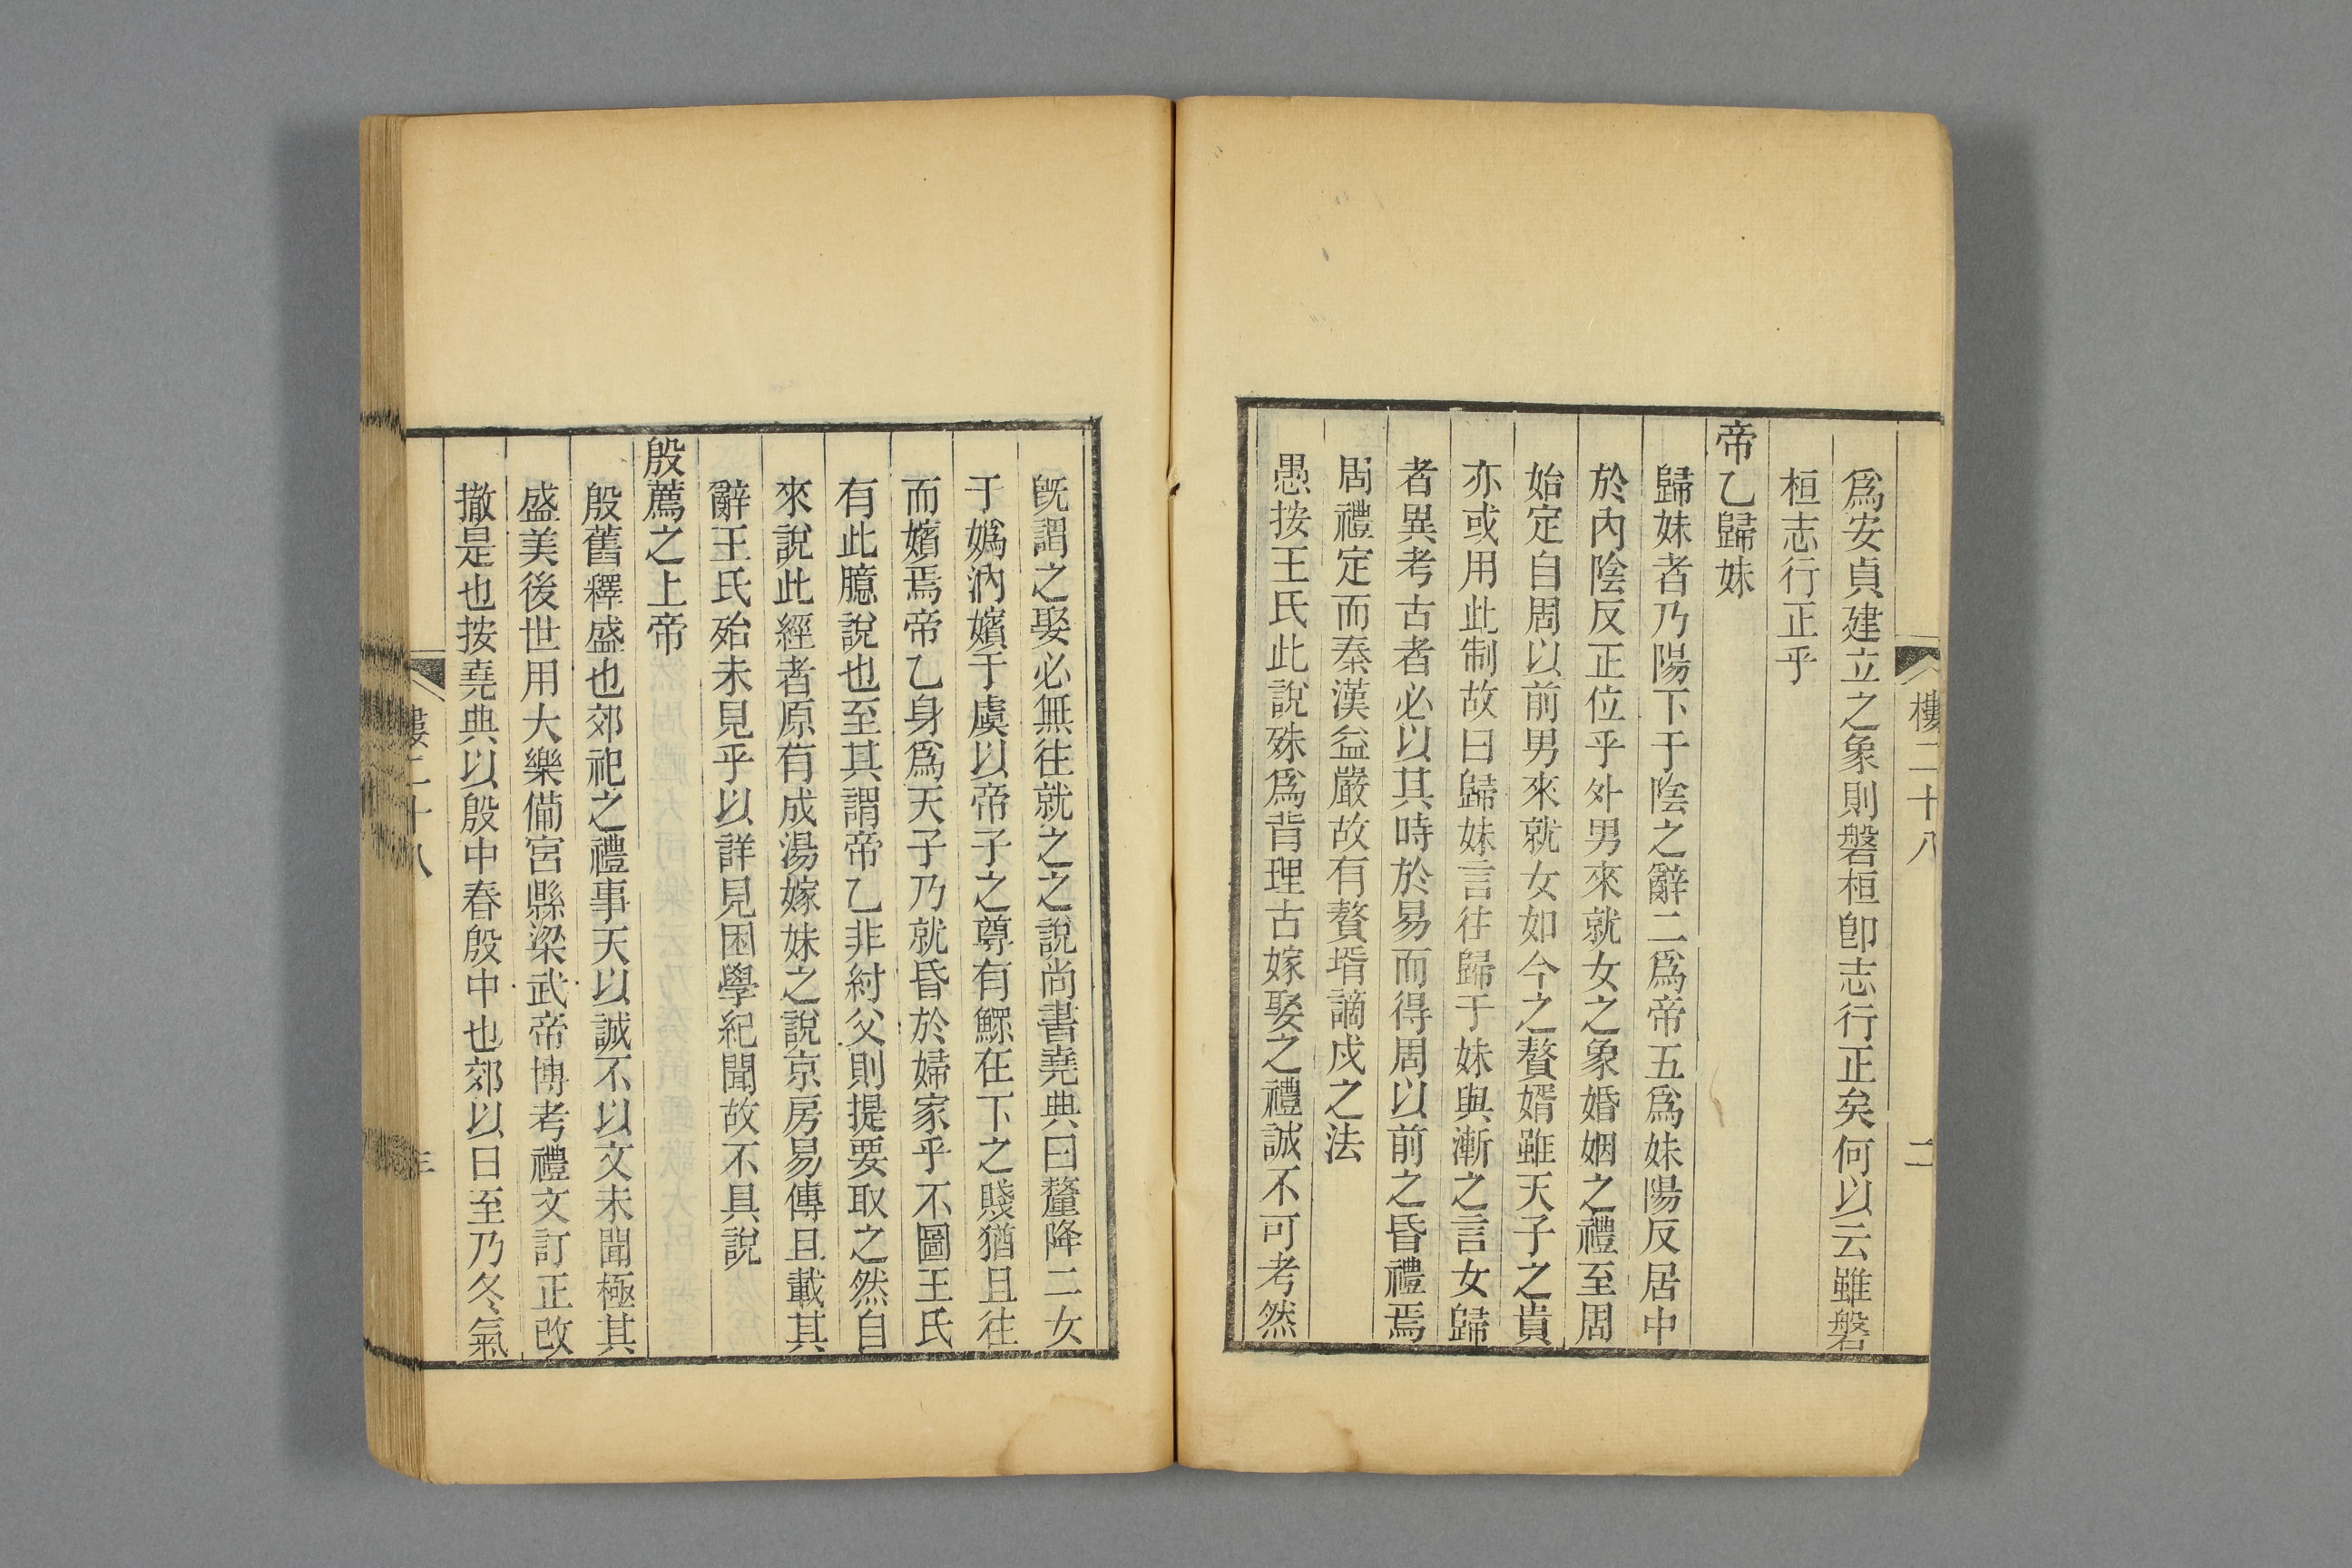 樓二十八
二
爲安貞建立之象則磐桓卽志行正矣何以云雖磐
桓志行正乎
帝乙歸妹
歸妹者乃陽下于陰之辭二爲帝五爲妹陽反居中
於內陰反正位乎外男來就女之象婚姻之禮至周
始定自周以前男來就女如今之贅婿雖天子之貴
亦或用此制故曰歸妹言往歸于妹與漸之言女歸
者異考古者必以其時於易而得周以前之昏禮焉
周禮定而秦漢益嚴故有贅壻謫戍之法
愚按王氏此說殊爲背理古嫁娶之禮誠不可考然
旣謂之娶必無往就之之說尚書堯典曰釐降二女
于嬀汭嬪于虞以帝子之尊有鰥在下之賤猶且往
而嬪焉帝乙身爲天子乃就昏於婦家乎不圖王氏
有此臆說也至其謂帝乙非紂父則提要取之然自
來說此經者原有成湯嫁妹之說京房易傳且載其
辭王氏殆未見乎以詳見困學紀聞故不具說
殷薦之上帝
殷舊釋盛也郊祀之禮事天以誠不以文未聞極其
盛美後世用大樂備宮縣梁武帝博考禮文訂正改
撤是也按堯典以殷中春殷中也郊以日至乃冬氣
樓二十八
三